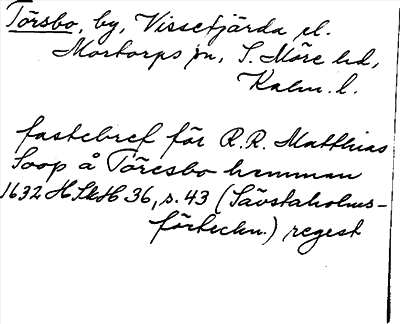 Törsbo, by, Vissefjärda el.
Mortorps sn, S. Möre hd,
Kalm. l.
fastebref för R.R. Matthias
Soop å Töresbo hemman
1632 HSkH 36, s. 43 (Sävstaholms-
förteckn.) regest